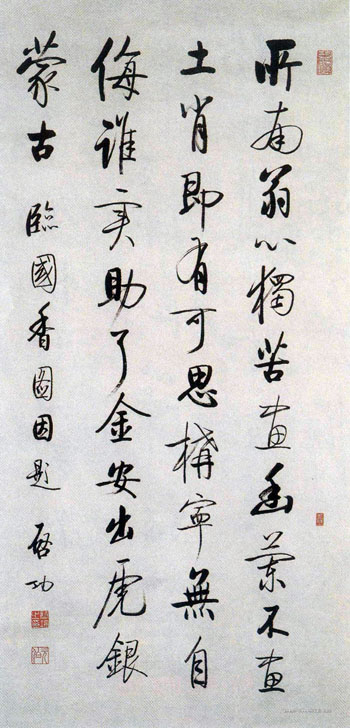 所南翁心獨苦画幽蘭不画
土肖即有可思構寧無自
侮誰実助了金安出虎銀
蒙古 臨國香圖因題 啓功